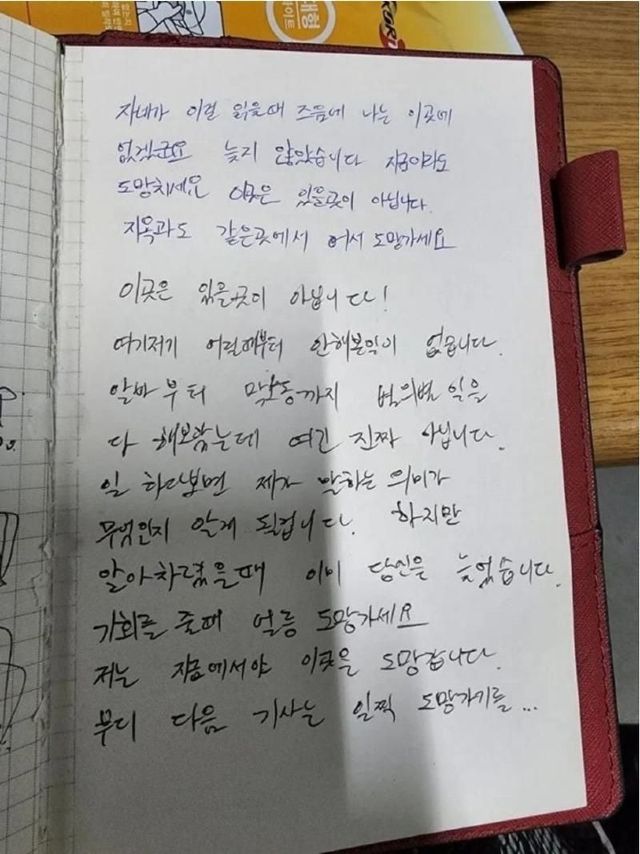 대형
사이트
자네가 이걸 읽을때 즈음에 나는 이곳에
없겠군요 늦지 않았습니다 지금이라도
도망치세요 이곳은 있을곳이 아닙니다.
지옥과도 같은곳에서 어서 도망가세요
이곳은 있을곳이 아닙니다!
여기저기 어릴때부터 안해본일이 없습니다.
알바부터 막노동까지 별의별 일을
다 해보았는데 여긴 진짜 아닙니다.
일 하다보면 제가 말하는 의미가
무엇인지 알게 될겁니다. 하지만
알아차렸을때 이미 당신은 늦었습니다.
기회를 줄때 얼릉 도망가세요
저는 지금에서야 이곳을 도망갑니다.
부디 다음 기사는 일찍 도망가기를...